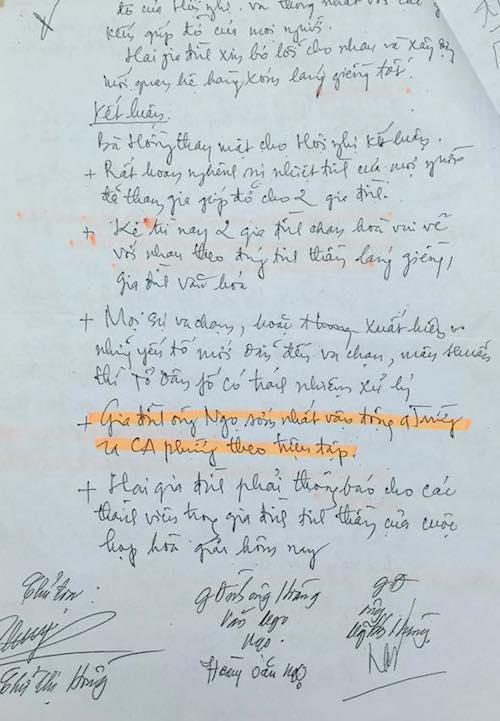 đỡ của Hội nghị và thống nhất với các ý
kiến giúp đỡ của mọi người.
Hai gia đình xin bỏ lỗi cho nhau và xây dựng
mối quan hệ hàng xóm láng giềng tốt.
Kết luận.
Bà Hồng thay mặt cho Hội nghị kết luận.
+ Rất hoan nghênh sự nhiệt tình của mọi người
đã tham gia giúp đỡ cho 2 gia đình.
+ Kể từ nay 2 gia đình chan hoà vui vẻ
với nhau theo đúng tinh thần láng giềng,
gia đình văn hoá
+ Mọi sự va chạm, hoặc xuất hiện
những yếu tố mới dẫn đến va chạm, mâu thuẫn
thì Tổ dân fố có trách nhiệm xử lý
+ Gia đình ông Ngọ sớm nhất vận động
ra CA phường theo triệu tập.
+ Hai gia đình phải thông báo cho các
thành viên trong gia đình tinh thần của cuộc
họp hoà giải hôm nay
Hùng
Văn Ngọ
Ngọ
Hoàng Văn Ngọ
Thị Hồng